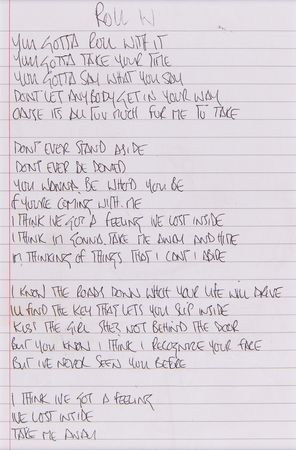 ROLL W
YOU GOTTA ROLL WITH IT
YOU GOTTA TAKE YOUR TIME
YOU GOTTA SAY WHAT YOU SAY
DONT LET ANYBODY GET IN YOUR WAY
CAUSE ITS ALL TOO MUCH FOR ME TO TAKE
DONT EVER STAND ASIDE
DONT EVER BE DENIED
YOU WANNA BE WHO'D YOU BE
IF YOU'RE COMING WITH ME
I THINK IVE GOT A FEELING IVE LOST INSIDE
I THINK IM GONNA TAKE ME AWAY AND HIDE
IM THINKING OF THINGS THAT I CANT ABIDE
I KNOW THE ROADS DOWN WHICH YOUR LIFE WILL DRIVE
ILL FIND THE KEY THAT LETS YOU SLIP INSIDE
KISS THE GIRL SHES NOT BEHIND THE DOOR
BUT YOU KNOW I THINK I RECOGNISE YOUR FACE
BUT IVE NEVER SEEN YOU BEFORE
I THINK IVE GOT A FEELING
IVE LOST INSIDE
TAKE ME AWAY